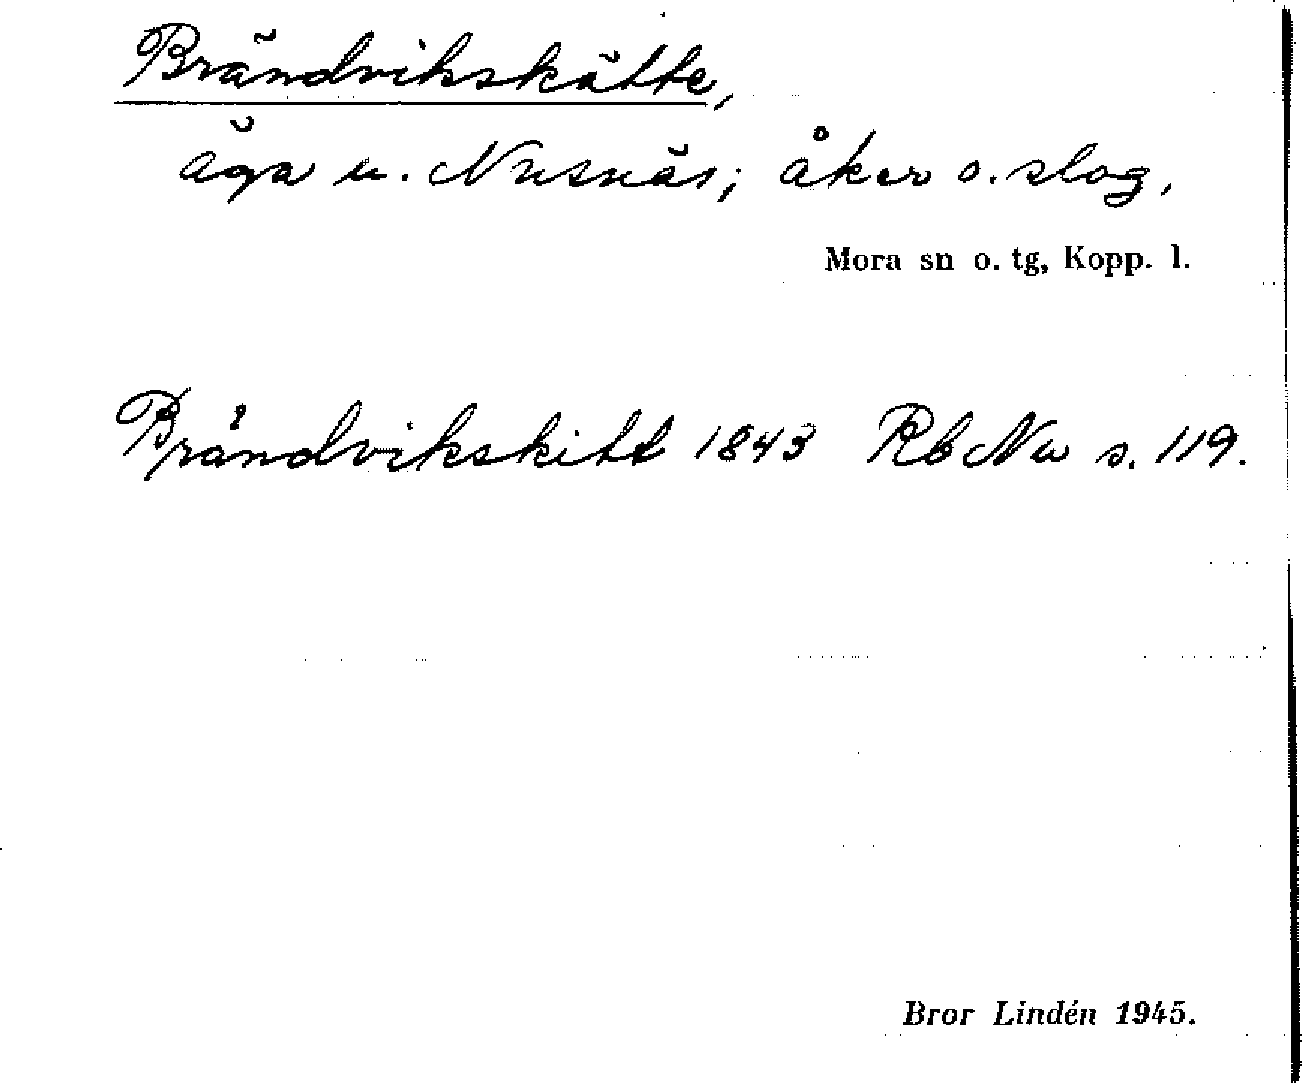 Brändvikskätte,
äga u. Nusnäs; åker o. slog,
Mora sn o. tg, Kopp. l.
Brändvikskitt 1843 Rb Nu s. 119.
Bror Lindén 1945.